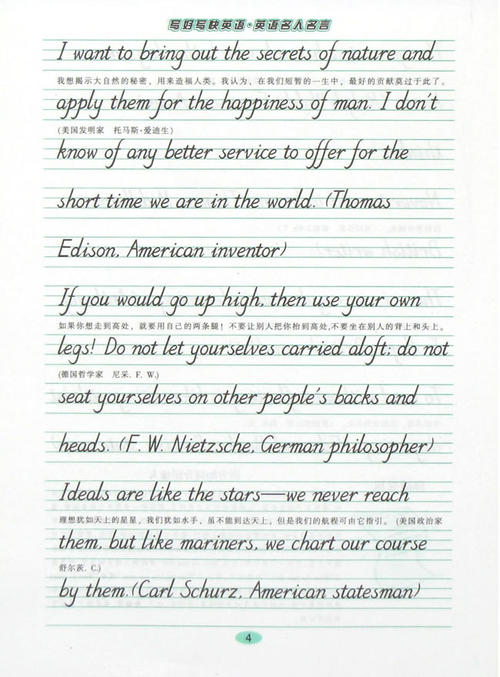 写好写快英语·英语名人名言
I want to bring out the secrets of nature and
我想揭示大自然的秘密，用来造福人类。我认为，在我们短暂的一生中，最好的贡献莫过于此了。
apply them for the happiness of man. I don't
(美国发明家 托马斯·爱迪生)
know of any better service to offer for the
short time we are in the world. (Thomas
Edison, American inventor)
If you would go up high, then use your own
如果你想走到高处，就要用自己的两条腿！不要让别人把你抬到高处,不要坐在别人的背上和头上。
legs! Do not let yourselves carried aloft; do not
(德国哲学家 尼采. F. W.)
seat yourselves on other people's backs and
heads. (F. W. Nietzsche, German philosopher)
Ideals are like the stars—we never reach
理想犹如天上的星星，我们犹如水手，虽不能到达天上，但是我们的航程可由它指引。(美国政治家
them, but like mariners, we chart our course
舒尔茨. C.)
by them.(Carl Schurz, American statesman)
4